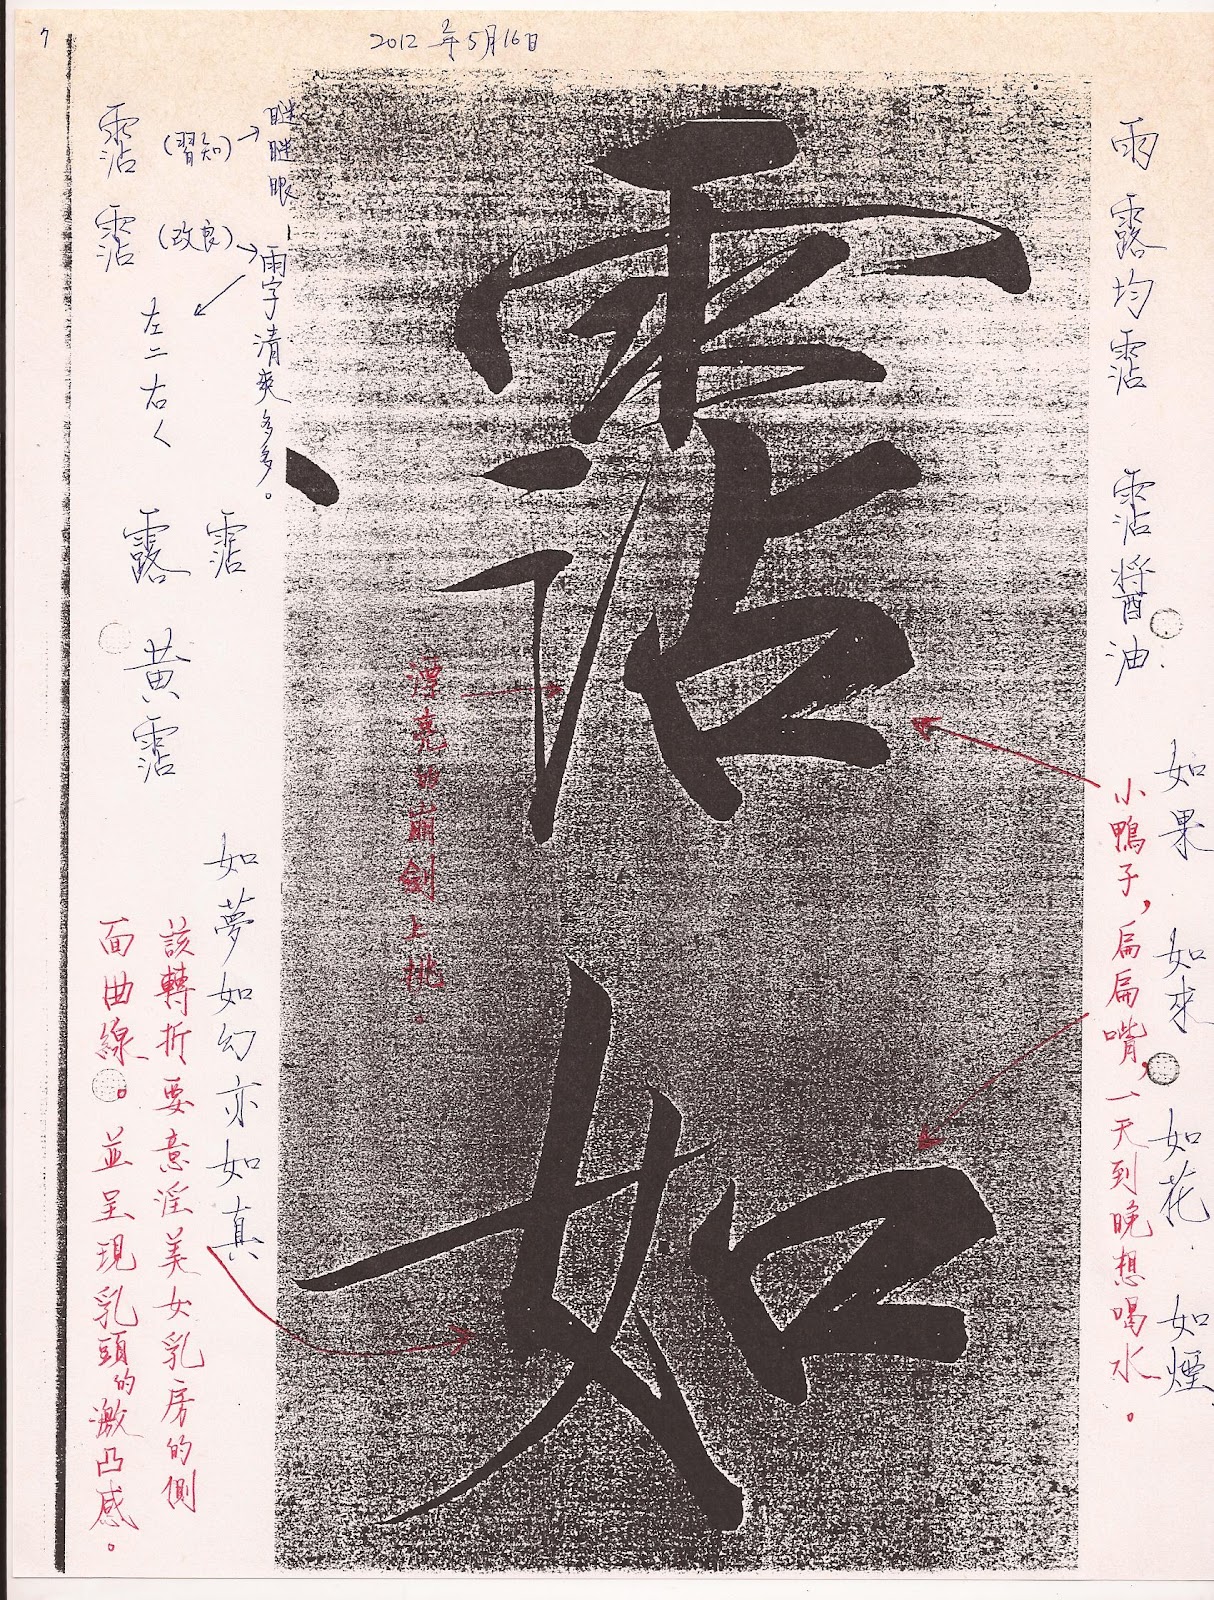 7
2012年5月16日
雨露均霑 霑醬油.
如果.如來.如花.如煙.
小鴨子，扁扁嘴，一天到晚想喝水。
霑
如
漂亮的崩劍上挑。
霑(習知)→瞇瞇眼
霑(改良)→雨字清爽多多。
左二右く
霑
露 黃霑
如夢如幻亦如真
該轉折要意淫美女乳房的側
面曲線。並呈現乳頭的激凸感。